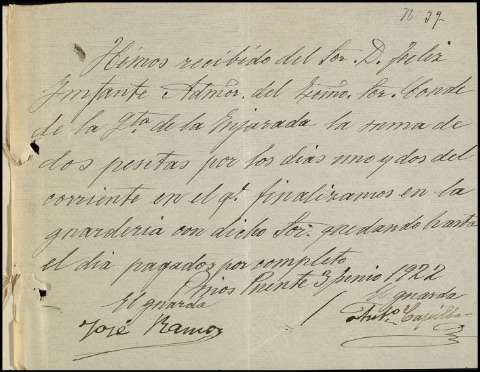 Nº 39.
Hemos recibido del Sor. D. Feliz
Infante Admor. del Exmo. Sor. Conde
de la Qta. de la Enjarada la suma de
dos pesetas por los dias uno y dos del
corriente en el qe. finalizamos en la
guarderia con dicho Sor. quedando hasta
el dia pagados por completo
Puente 3 Junio 1922
El guarda
El guarda
José Ramos
Anto.